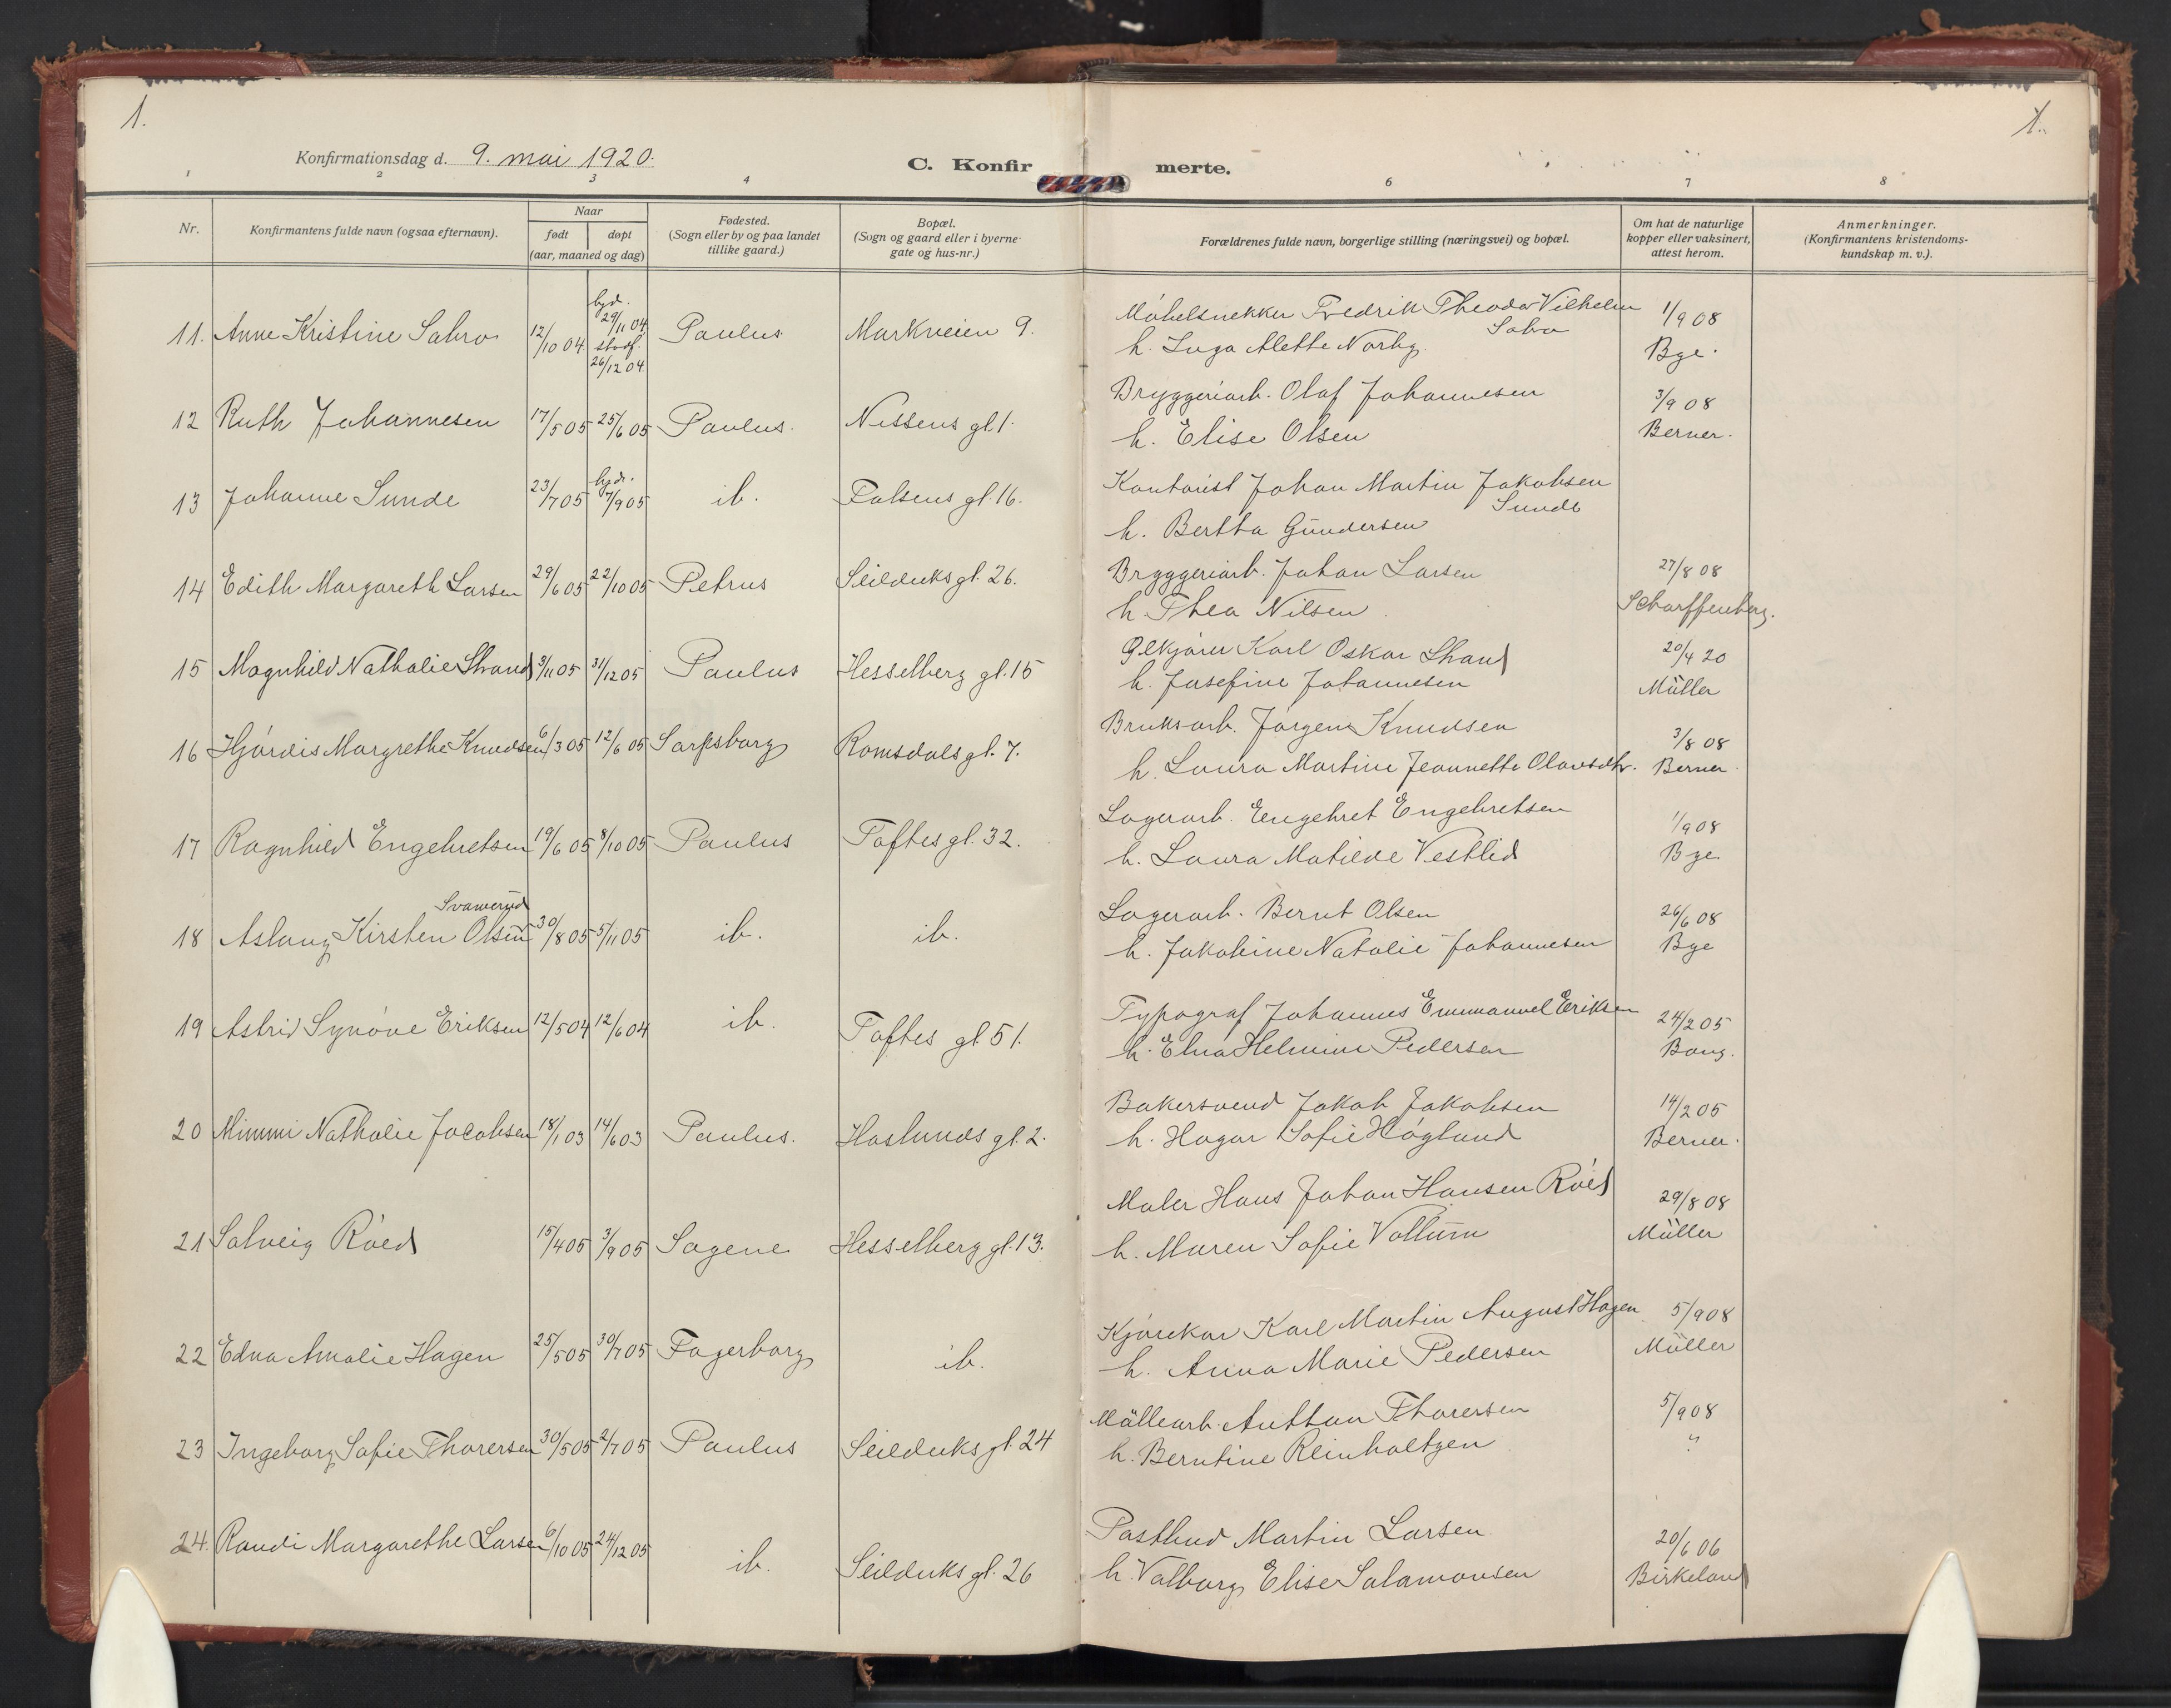 1.
1.
Konfirmationsdag d. 9. mai 1920.
C. Konfirmerte.
1 2 3 4 6 7 8
Nr.
Konfirmantens fulde navn (ogsaa efternavn).
Naar
født døpt
(aar, maaned og dag)
Fødested.
(Sogn eller by og paa landet
tillike gaard.)
Bopæl.
(Sogn og gaard eller i byerne
gate og hus-nr.)
Forældrenes fulde navn, borgerlige stilling (næringsvei) og bopæl.
Om hat de naturlige
kopper eller vaksinert,
attest herom.
Anmerkninger.
(Konfirmantens kristendoms-
kundskap m. v.).
11. Anne Kristine Sabro 12/10 04 hjd. 29/11 04 stadf. 26/12 04 Paulus Markveien 9.
Møbelsnekker Fredrik Theodor Vilhelm Sabro 1/9 08
h. Inga Alette Norby Bye.
12 Ruth Johannesen 17/5 05 25/6 05 Paulus. Nissens gt 1.
Bryggeriarb. Olaf Johannesen 3/9 08
h. Elise Olsen Berner.
13 Johanne Sunde 23/7 05 hjd. 7/9 05 ib. Falsens gt. 16.
Kontorist Johan Martin Jakobsen Sunde
h. Bertha Gundersen
14 Edith Margareth Larsen 29/6 05 22/10 05 Petrus Seilduks gt. 26.
Bryggeriarb. Johan Larsen 27/8 08
h. Thea Nilsen Scharffenberg.
15 Magnhild Nathalie Strand 3/11 05 31/12 05 Paulus Hesselberg gt. 15
Ølkjører Karl Oskar Strand 20/4 20
h. Josefine Johannesen Müller
16 Hjørdis Margrethe Knudsen 6/3 05 12/6 05 Sarpsborg Romsdals gt. 7.
Bruksarb. Jørgen Knudsen 3/8 08
h. Laura Martine Jeannette Olavsdtr. Berner
17 Ragnhild Engebretsen 19/6 05 8/10 05 Paulus Toftes gt. 32.
Lagerarb. Engebret Engebretsen 1/9 08
h. Laura Matilde Vestlid Bye.
18 Aslaug Kirsten Olsen 30/8 05 5/11 05 ib. ib.
Lagerarb. Bernt Olsen 26/6 08
h. Jakobine Natalie Johannesen Bye
19 Astrid Synøve Eriksen 12/5 04 12/6 04 ib. Toftes gt. 51.
Typograf Johannes Emmanuel Eriksen 24/2 05
h. Elna Helmine Pedersen Bang.
20 Mimmi Nathalie Jacobsen 18/1 03 14/6 03 Paulus. Haslunds gt. 2.
Bakersvend Jakob Jakobsen 14/2 05
h. Hagar Sofie Høglund Berner.
21 Solveig Røed 15/4 05 3/9 05 Sagene Hesselberg gt. 13.
Maler Hans Johan Hansen Røed 29/8 08
h. Maren Sofie Vollum Müller
22 Edna Amalie Hagen 25/5 05 30/7 05 Fagerborg ib.
Kjørekar Karl Martin August Hagen 5/9 08
h. Anna Marie Pedersen Müller
23 Ingeborg Sofie Thorersen 30/5 05 2/7 05 Paulus Seilduks gt. 24
Møllearb. Anthon Thorersen 5/9 08
h. Berntine Reinholtzen "
24. Randi Margarethe Larsen 6/10 05 24/12 05 ib. Seilduks gt. 26
Postbud Martin Larsen 20/6 06
h. Valborg Elise Salamonsen Birkeland